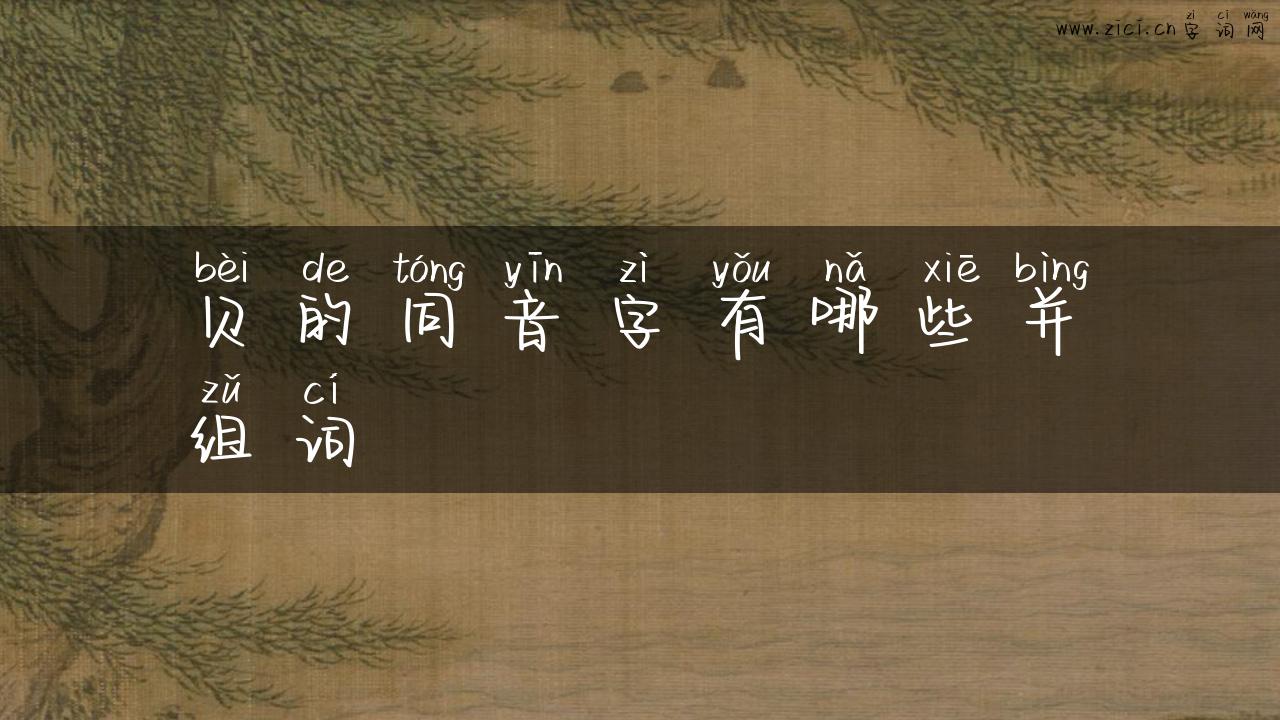 zì cí wǎng
www.zici.cn 字词网
bèi de tóng yīn zì yǒu nǎ xiē bìng
贝的同音字有哪些并
zǔ cí
组词